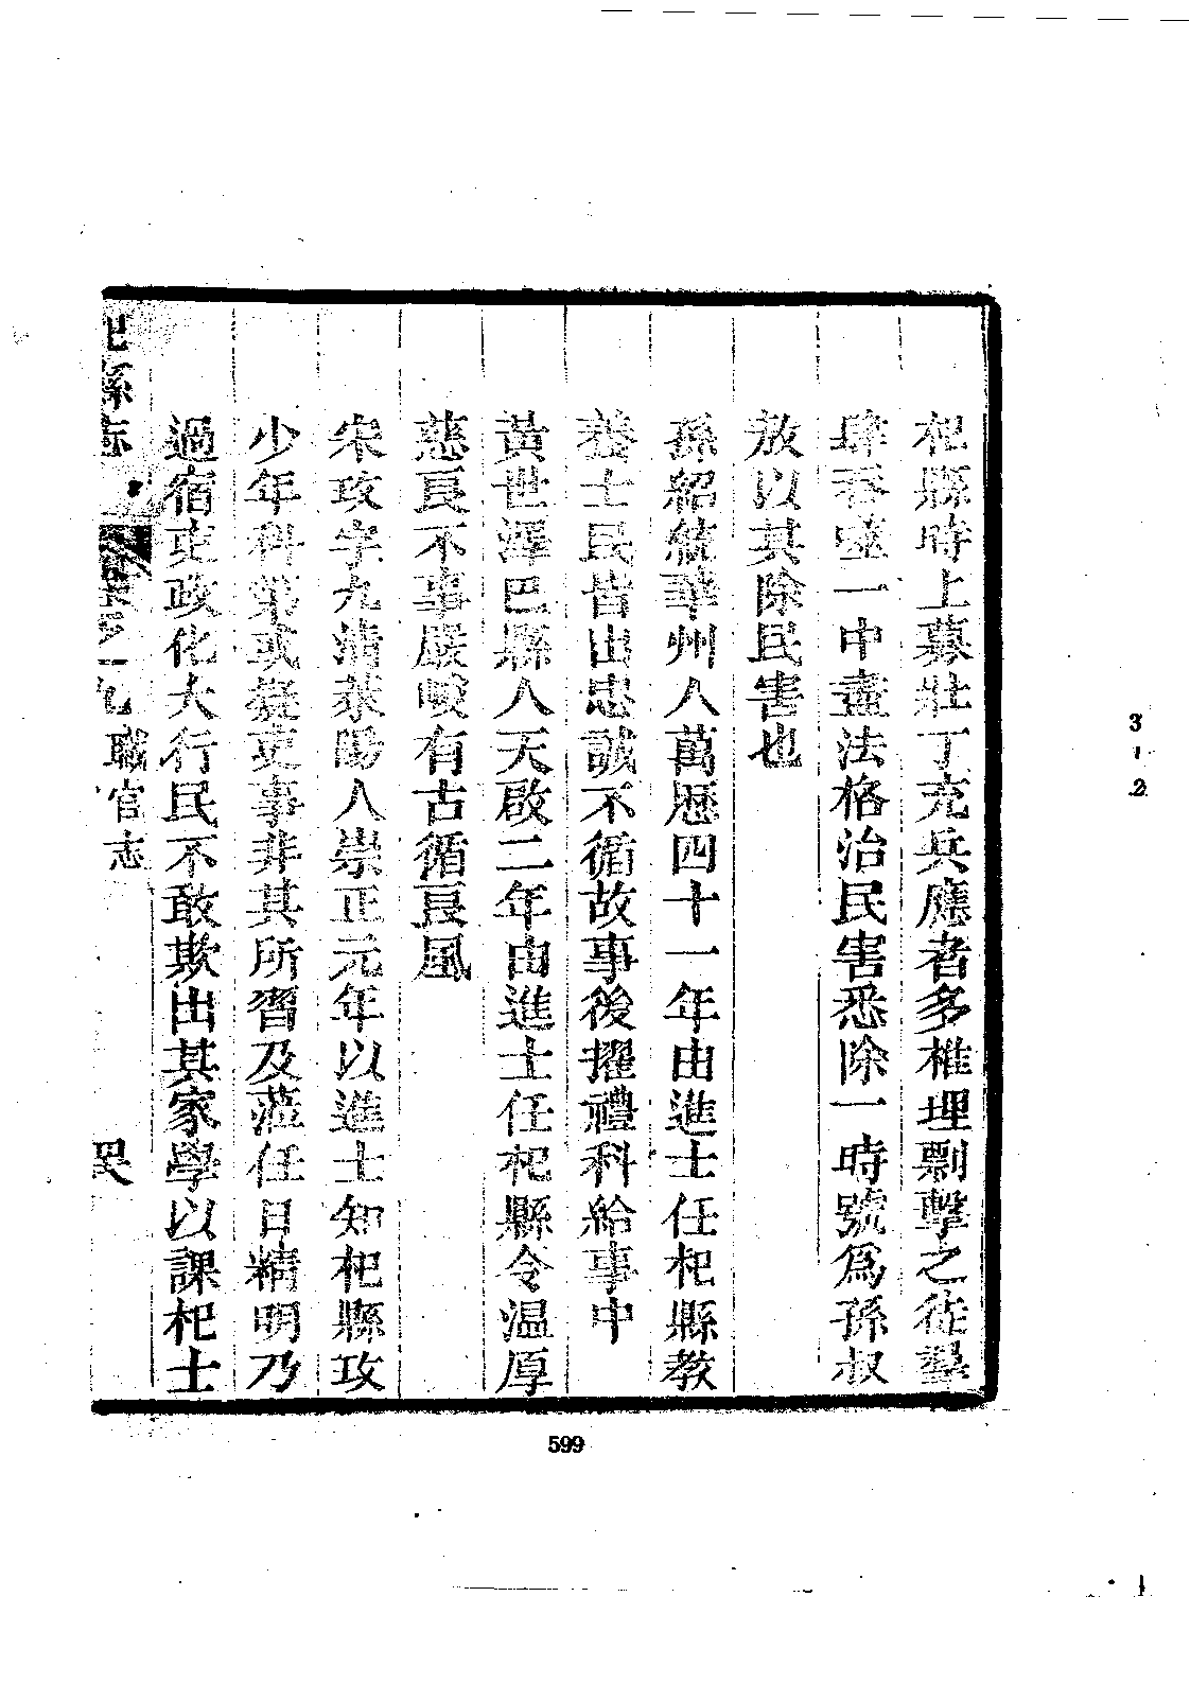 杞縣時上募壯丁充兵應者多椎埋剽擊之徒羣
肆吞噬一中盡法格治民害悉除一時號爲孫叔
敖以其除民害也
孫紹統華州人萬歷四十一年由進士任杞縣教
養士民皆出忠誠不循故事後擢禮科給事中
黃世澤巴縣人天啟二年由進士任杞縣令温厚
慈良不事嚴峻有古循良風
宋玫字九清萊陽人崇正元年以進士知杞縣玫
少年科第或疑吏事非其所習及蒞任日精明乃
過宿吏政化大行民不敢欺出其家學以課杞士
杞縣志
卷之九 職官志
599
3
1
2